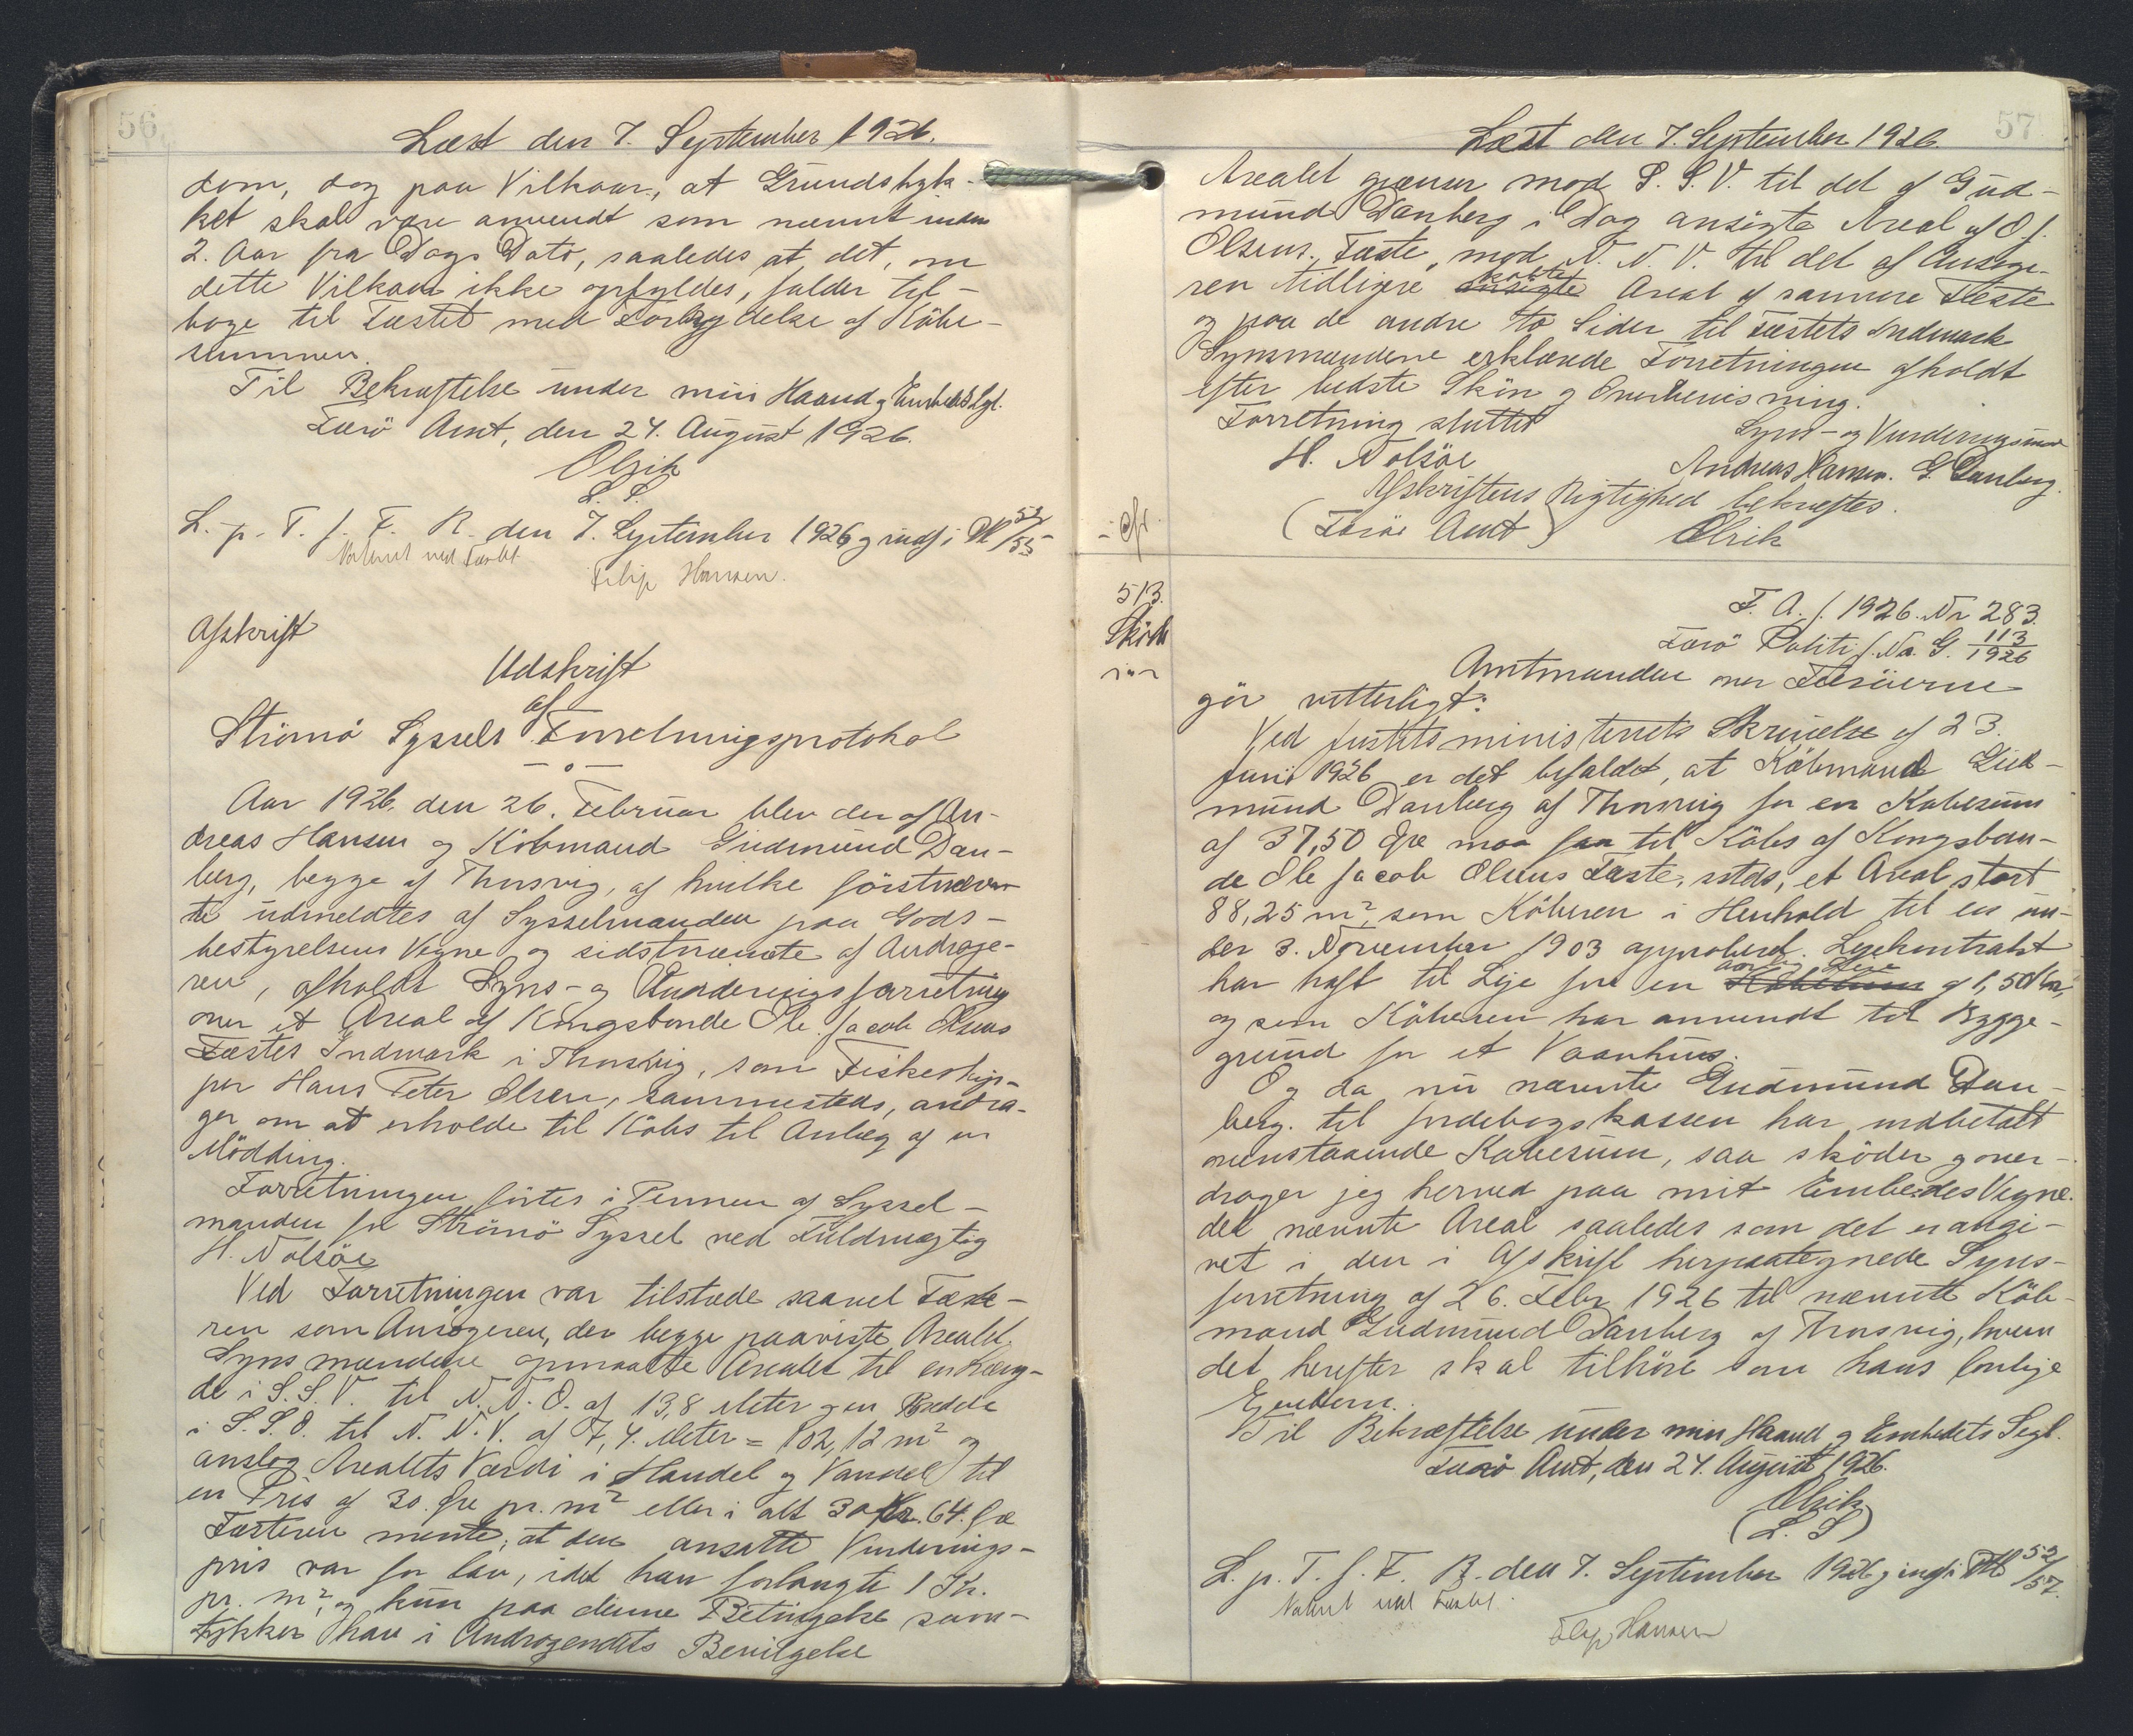 56
Læst den 7. September 1926.
dom, dog paa Vilkaar, at Grundstyk-
ket skal være anvendt som nævnt inden
2. Aar fra Dags Dato, saaledes at det, om
dette Vilkaar ikke opfyldes, falder til-
bage til Fæstet med Fortabelse af Købe-
summen.
Til Bekræftelse under min Haand og Embedets Sgl.
Færö Amt, den 24. August 1926.
Olrik
L. S.
L. p. T. f. F. R. den 7. September 1926 og indf i Ptl 52/55-
Noteret ved Fæstet
Filip Hansen.
Afskrift
Udskrift
af
Strömö Syssels Forretningsprotokol
Aar 1926. den 26. Februar blev der af An-
dreas Hansen og Köbmand Gudmund Dan-
berg, begge af Thorsvig, af hvilke förstnævn-
te udmeldtes af Sysselmanden paa Gods-
bestyrelsens Vegne og sidstnævnte af Andrage-
ren, afholdt Syns- og Vurderingsforretning
over et Areal af Kongsbonde Ole Jacob Olsens
Fæstes Indmark i Thorsvig, som Fiskeskip-
per Hans Peter Olsen, sammesteds, andra-
ger om at erholde til Köbs til Anlæg af en
Mödding.
Forretningen förtes i Pennen af Syssel-
manden for Strömö Syssel ved Fuldmægtig
H. Nolsöe
Ved Forretningen var tilstede saavel Fæste-
ren som Ansögeren, der begge paaviste Arealet.
Synsmændene opmaalte Arealet til en Læng-
de i S.S.V. til N.N.O. af 13,8 Meter og en Bredde
i S.S.O. til N.N.V. af 7,4. Meter = 102,12 m² og
anslog Arealets Værdi i Handel og Vandel til
en Pris af 30. Øre pr. m² eller i alt 30 Kr. 64. Øre
Fæsteren mente, at den ansatte Vurderings-
pris var for lav, idet han forlangte 1 Kr.
pr. m², og kun paa denne Betingelse sam-
tykker han i Andragendets Bevilgelse
57
Læst den 7. September 1926.
Arealet grænser mod S.S.V. til det af Gud-
mund Danberg i Dag ansögte Areal af O J.
Olsens Fæste, mod N.N.V. til det af Ansöge-
ren tidligere ansögte köbte Areal af samme Fæste
og paa de andre to Sider til Fæstets Indmark
Synsmændene erklærede Forretningen afholdt
efter bedste Skön og Overbevisning.
Forretning sluttet
Syns- og Vurderingsmænd
H. Nolsöe
Andreas Hansen. G. Danberg.
Afskriftens Rigtighed bekræftes.
(Færöe Amt)
Olrik
513.
Sköde
F. A. J. 1926. Nr 283.
Færö Politi J. No. G. 113/1926
Amtmanden over Færöerne
gör vitterligt:
Ved Justitsministeriets Skrivelse af 23.
Juni 1926 er det bifaldet, at Köbmand Gud-
mund Danberg af Thorsvig for en Købesum
af 37,50 Øre maa faa til Köbs af Kongsbon-
de Ole Jacob Olsens Fæste, ssteds, et Areal stort
88,25 m², som Köberen i Henhold til en un-
der 3. November 1903 approberet Lejekontrakt
har haft til Leje for en Købesum aarlig Leje af 1,50 Kr,
og som Köberen har anvendt til Bygge-
grund for et Vaaahus.
Og da nu nævnte Gudmund Dan-
berg. til Jordebogskassen har indbetalt
ovenstaaende Købesum, saa sköder og over-
drager jeg herved paa mit Embedes Vegne
det nævnte Areal saaledes som det er angi-
vet i den i Afskrift herpaategnede Syns-
forretning af 26. Febr. 1926 til nævnte Köb-
mand Gudmund Danberg af Thorsvig, hvem
det herefter skal tilhöre som hans lovlige
Ejendom.
Til Bekræftelse under min Haand og Embedets Segl.
Færö Amt, den 24. August 1926.
Olrik
(L. S)
L. p. T. f. F. R. den 7. September 1926 og indf i Ptl 52/57.
Noteret ved Fæstet.
Filip Hansen